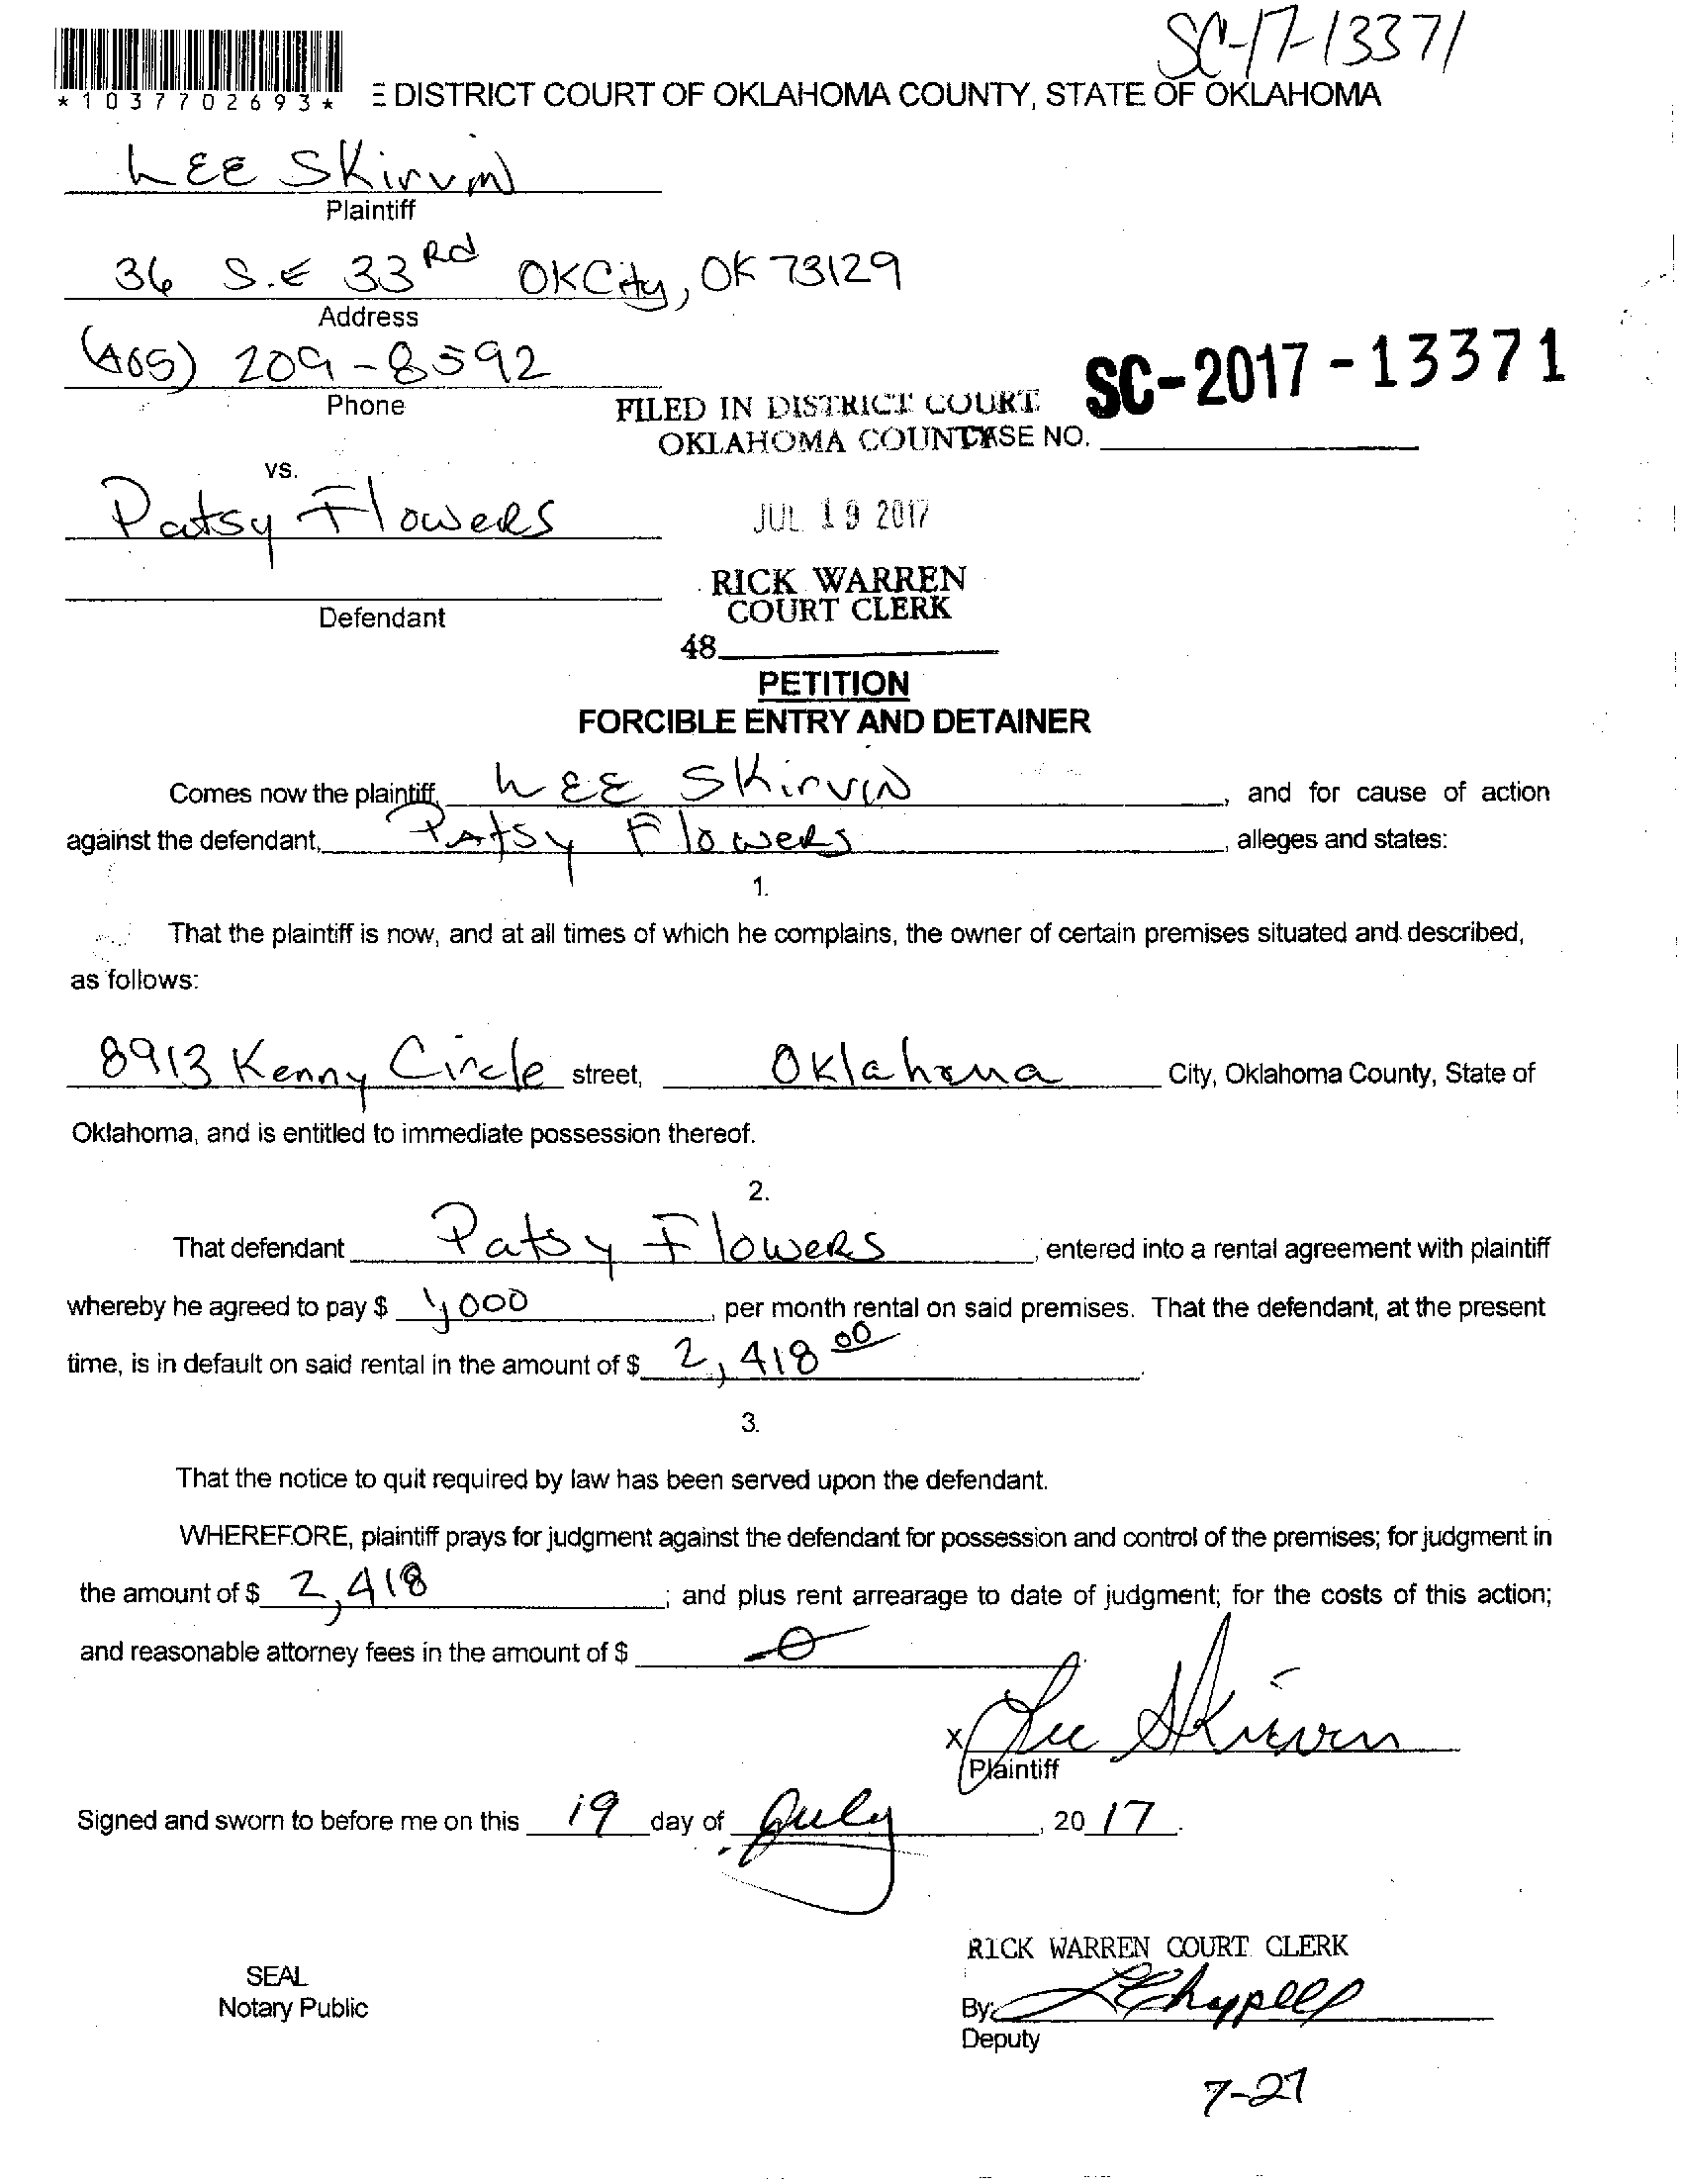 SC-17-13371
*1037702693*
E DISTRICT COURT OF OKLAHOMA COUNTY, STATE OF OKLAHOMA
LEE SKirvin
Plaintiff
36 S.E 33Rd OKCity, OK 73129
Address
(405) 209-8592
Phone
SC-2017-13371
FILED IN DISTRICT COURT
OKLAHOMA COUNTY CASE NO.
vs.
Patsy Flowers
JUL 19 2017
RICK WARREN
COURT CLERK
Defendant
48
PETITION
FORCIBLE ENTRY AND DETAINER
Comes now the plaintiff, LEE SKirvin, and for cause of action
against the defendant, Patsy Flowers, alleges and states:
1.
That the plaintiff is now, and at all times of which he complains, the owner of certain premises situated and described,
as follows:
8913 Kenny Circle street, Oklahoma City, Oklahoma County, State of
Oklahoma, and is entitled to immediate possession thereof.
2.
That defendant Patsy Flowers, entered into a rental agreement with plaintiff
whereby he agreed to pay $ 1,000, per month rental on said premises. That the defendant, at the present
time, is in default on said rental in the amount of $ 2,418 00.
3.
That the notice to quit required by law has been served upon the defendant.
WHEREFORE, plaintiff prays for judgment against the defendant for possession and control of the premises; for judgment in
the amount of $ 2,418; and plus rent arrearage to date of judgment; for the costs of this action;
and reasonable attorney fees in the amount of $ 0
x Lee Skirvin
Plaintiff
Signed and sworn to before me on this 19 day of July, 20 17.
RICK WARREN COURT CLERK
SEAL
Notary Public
By: LChappell
Deputy
7-27